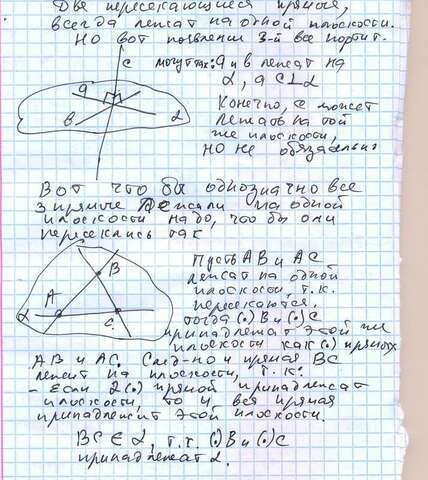 Две пересекающиеся прямые,
всегда лежат на одной плоскости.
Но вот появлении 3-й все портит.
c
a
в
α
могут так: a и в лежат на
α, а c⊥α
Конечно, с может
лежать на той
же плоскости,
но не обязательно
Вот что бы однозначно все
3 прямые лежали на одной
плоскости надо, что бы они
пересеклись так
A
B
C
α
Пусть AB и AC
лежат на одной
плоскости, т.к.
пересекаются.
тогда (.)B и (.)C
принадлежат этой же
плоскости как (.) прямых
AB и AC. След-но и прямая BC
лежит на плоскости, т.к.
- если 2(.) прямой принадлежат
плоскости, то и вся прямая
принадлежит этой плоскости.
BC ∈ α, т.к. (.)B и (.)C
принадлежат α.